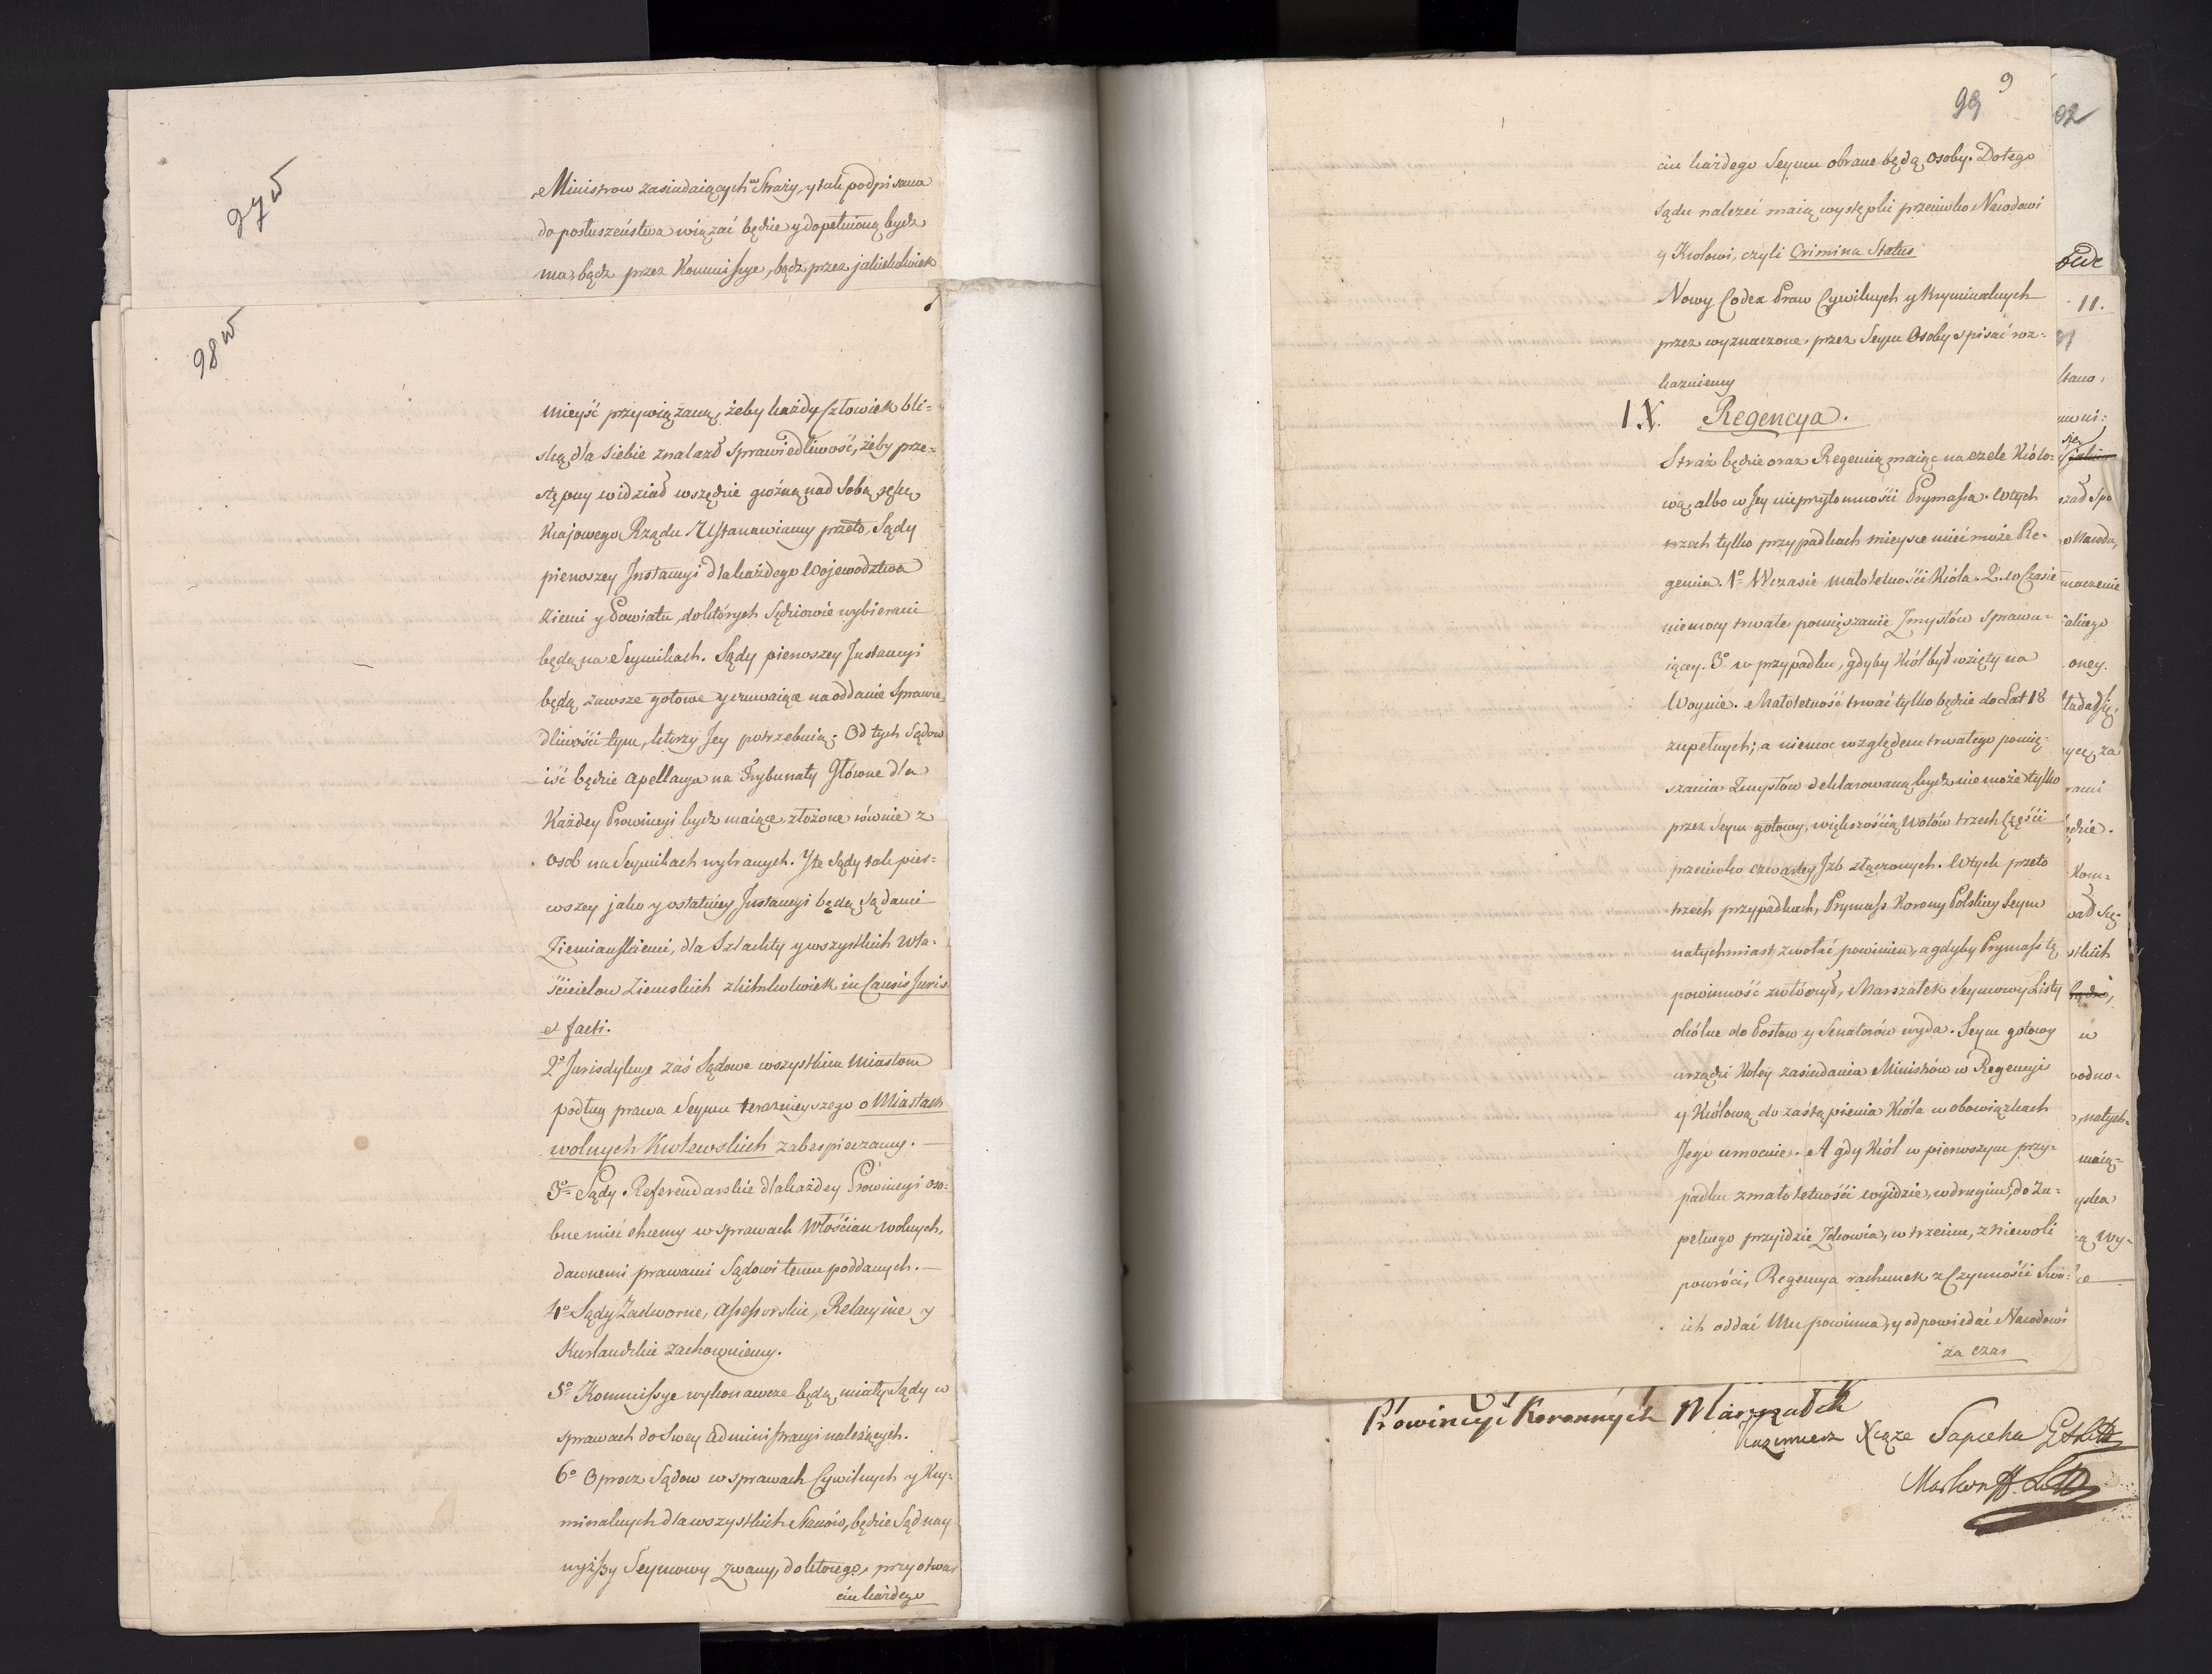 97 w
Ministrow zasiadaiących w Straży, y tak podpisana
do posłuszeństwa wiązać będzie y dopełnioną bydz
ma, bądz przez Kommissye, bądz przez jakieżkolwiek
98 w
mieyść przywiązaną, żeby każdy Człowiek bli=
ską dla siebie znalazł sprawiedliwość, żeby prze=
stępny widział wszędzie groźną nad sobą rękę
Krajowego Rządu Ustanawiamy przeto, Sądy
pierwszey Instancyi dla każdego Wojewodztwa
Ziemi y Powiatu, do których Sędziowie wybierani
będą na Seymikach. Sądy pierwszey Instancyi
będą zawsze gotowe y czuwaiące na oddanie Sprawie=
dliwości tym, którzy jey potrzebuią; Od tych Sądow
iść będzie apellacya na Trybunały Główne dla
Każdey Prowincyi bydz maiące, złożone równie z
osob na Seymikach wybranych. Y te Sądy tak pier=
wszey jako y ostatniey Instancyi będą Sądami
Ziemiańskiemi, dla Szlachty y wszystkich Wła=
ścicielow Ziemskich z kimkolwiek in Causis Juris
et facti.
2º Jurisdykcye zaś Sądowe wszystkim Miastom
podług prawa Seymu teraznieyszego o Miastach
wolnych Krolewskich zabespieczamy. —
3º Sądy Referendarskie dla każdey Prowincyi oso=
bne mieć chcemy w sprawach Włościan wolnych,
dawnemi prawami Sądowi temu poddanych. —
4º Sądy Zadworne, Assessorskie, Relacyine y
Kurlandzkie zachowuiemy.
5º Kommissye wykonawcze będą miały Sądy w
sprawach do Swey Administracyi należących.
6º Oprocz Sądow w sprawach Cywilnych y Kry=
minalnych dla wszystkich Stanów, będzie Sąd nay
wyższy Seymowy zwany, do którego, przy otwar
ciu każdego
9
99
ciu każdego Seymu obrane będą Osoby. Do tego
Sądu należeć maią występki przeciwko Narodowi
y Krolowi, czyli Crimina Status
Nowy Codex Praw Cywilnych y Kryminalnych
przez wyznaczone przez Seym Osoby spisać roz=
kazuiemy
IX. Regencya.
Straż będzie oraz Regencią maiąc na czele Królo=
wą, albo w Jey nieprzytomności Prymassa. W tych
trzech tylko przypadkach mieysce mieć może Re=
gencia. 1º W czasie małoletności Króla. 2. w Czasie
niemocy trwałe pomięszanie Zmysłów sprawu=
iącey. 3º w przypadku, gdyby Król był wzięty na
Woynie. Małoletność trwać tylko będzie do Lat 18
zupełnych; a niemoc względem trwałego pomię=
szania Zmysłów deklarowaną bydz nie może tylko
przez Seym gotowy, większością Wotów trzech Części
przeciwko czwartey Izb złączonych. W tych przeto
trzech przypadkach, Prymass Korony Polskiey Seym
natychmiast zwołać powinien, a gdyby Prymass tę
powinność zwłóczył, Marszałek Seymowy Listy
okólne do Posłow y Senatorów wyda. Seym gotowy
urządzi Koley zasiadania Ministrów w Regencyi
y Królową do zastąpienia Króla w obowiązkach
Jego umocnie. A gdy Król w pierwszym przy=
padku z małoletności wyidzie, w drugim, do zu=
pełnego przyidzie Zdrowia, w trzecim, z niewoli
powróci, Regencya rachunek z Czynności Swo=
ich oddać Mu powinna, y odpowiedać Narodowi
za czas
Prowincyi Koronnych Marszałek
Kazimierz Xciąże Sapieha
02
11.